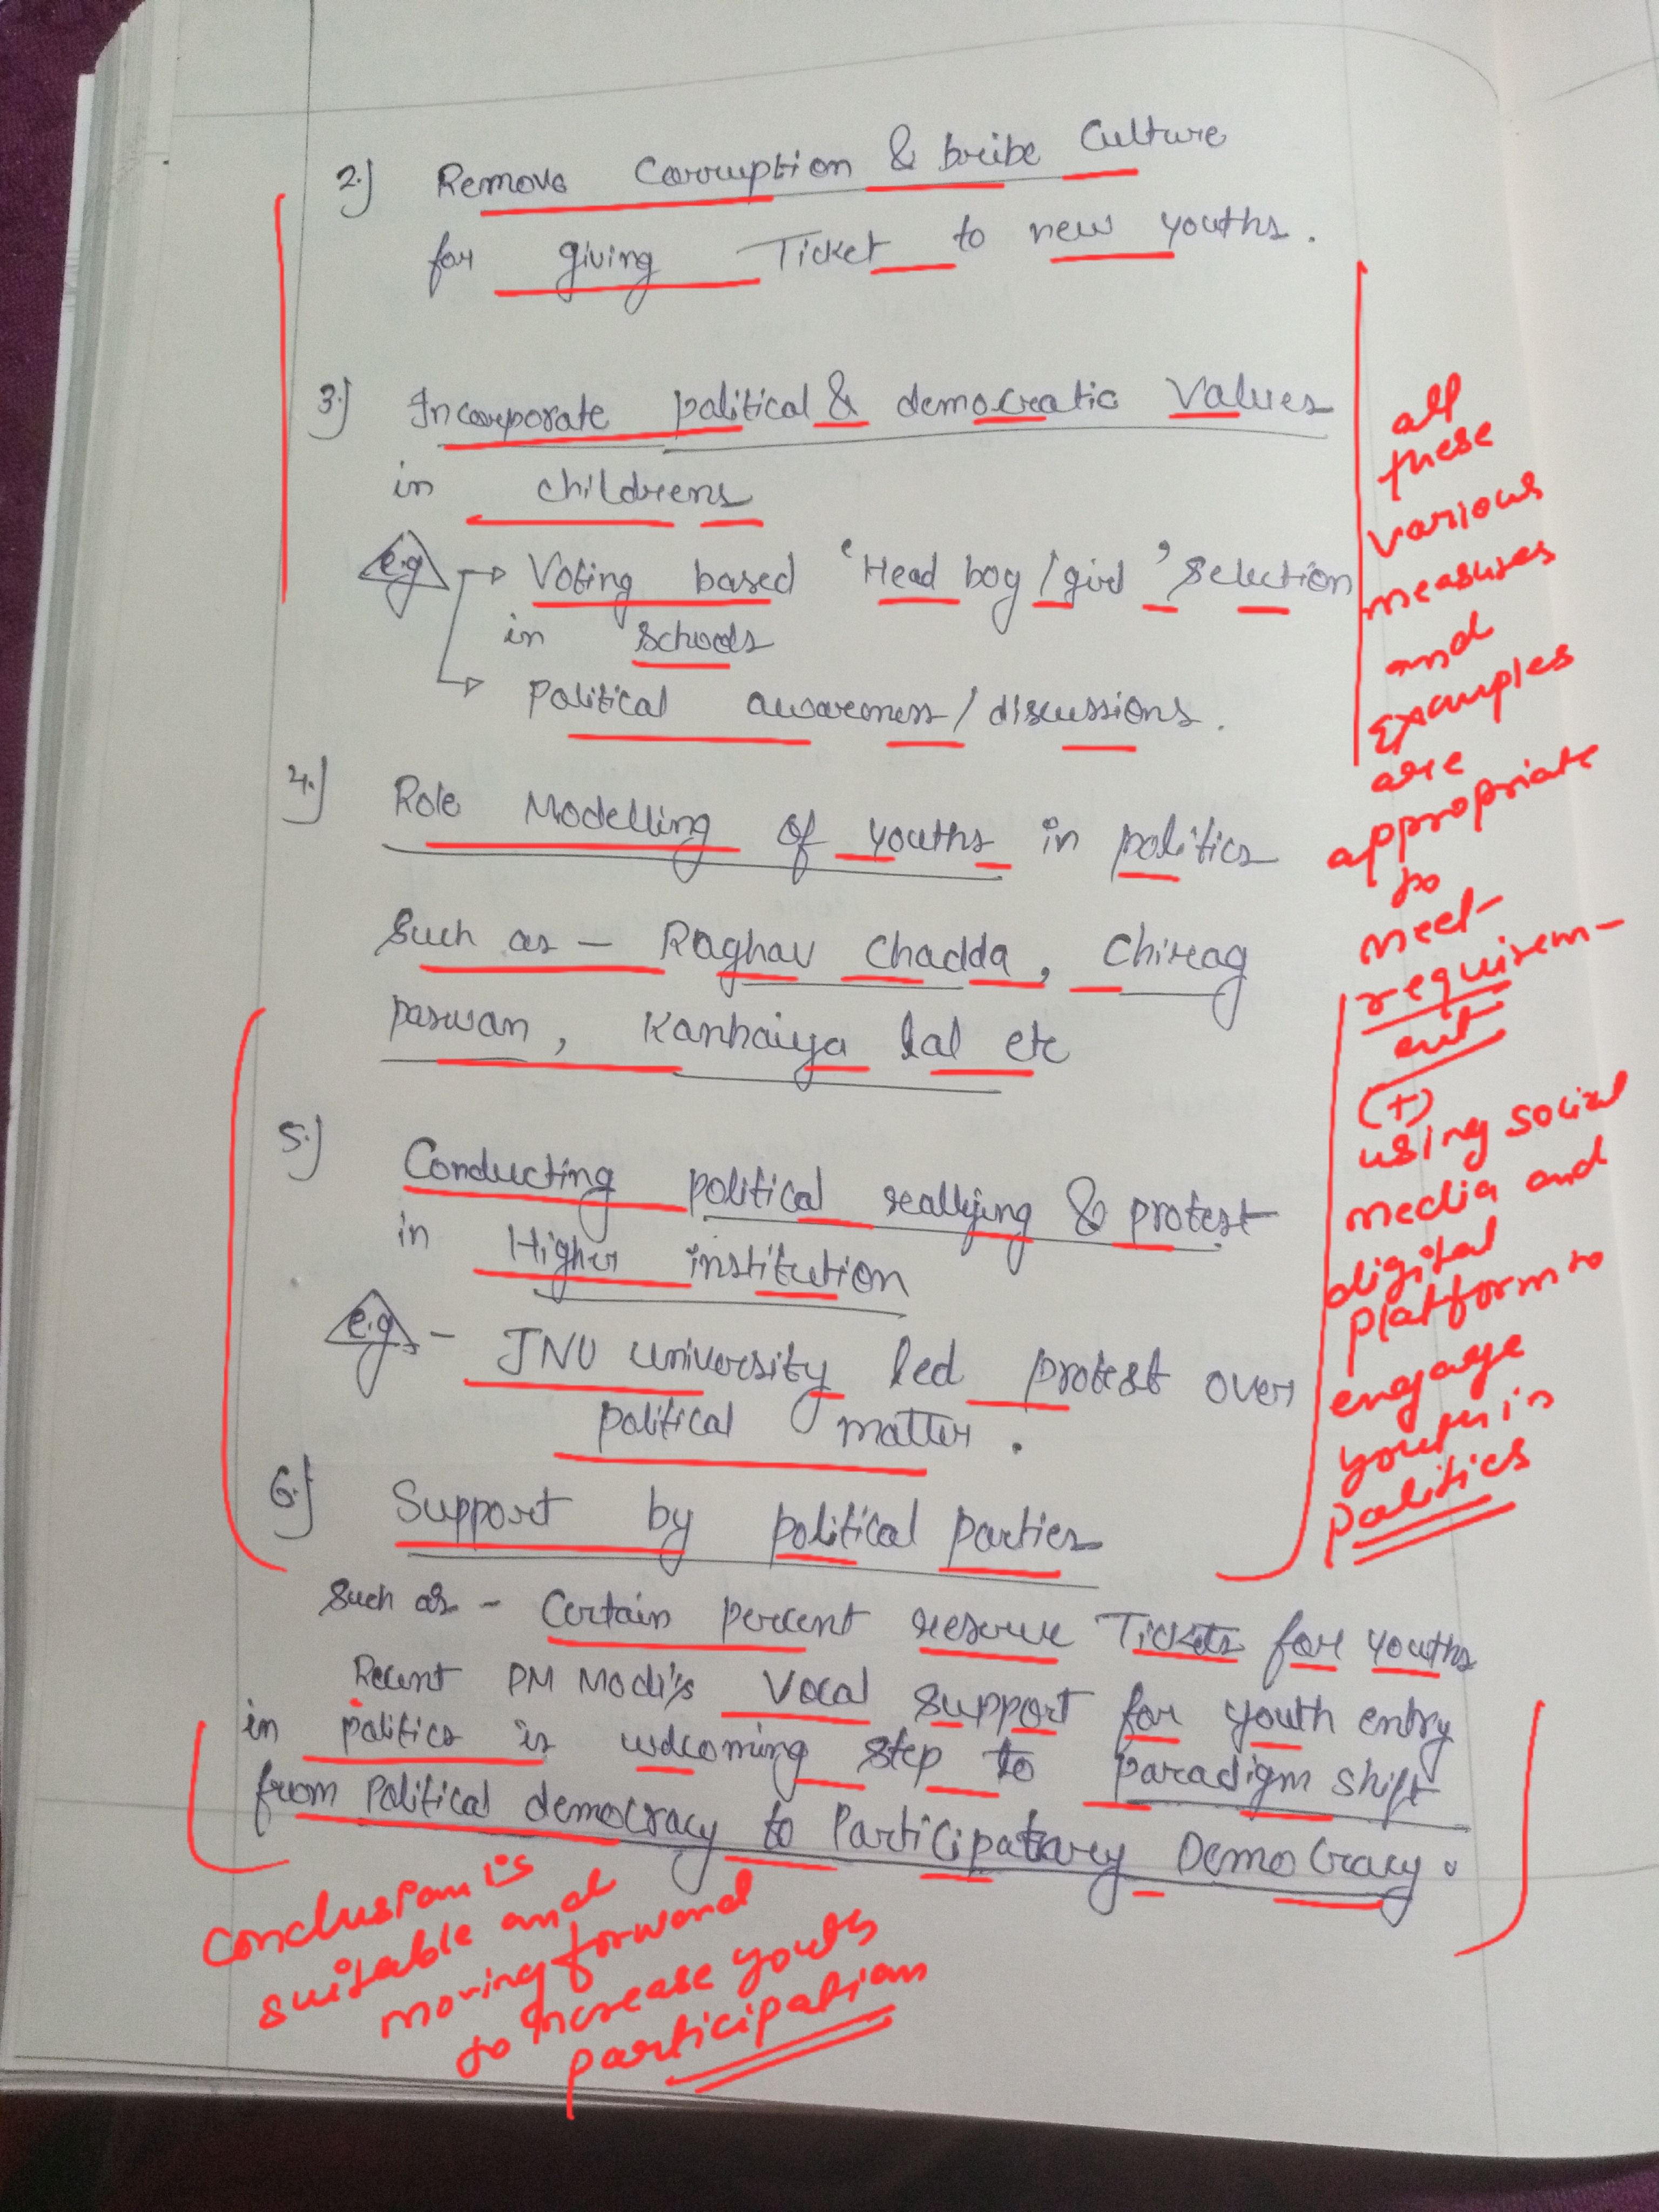 2.) Remove Corruption & bribe Culture
for giving Ticket to new youths.
3.) Incorporate political & democratic Values
in childrens
e.g → Voting based 'Head boy/girl' Selection
in schools
→ Political awareness/discussions.
4.) Role Modelling of youths in politics
Such as - Raghav Chadda, Chirag
paswan, Kanhaiya lal etc
5.) Conducting political rallying & protest
in Higher institution
e.g - JNU University led protest over
political matter.
6.) Support by political parties
Such as - Certain percent reserve Tickets for youths
Recent PM Modi's Vocal support for youth entry
in politics is welcoming step to paradigm shift
from Political democracy to Participatary Democracy.
all
these
various
measures
and
Examples
are
appropriate
to
meet
requirem-
ent
(+)
using social
media and
digital
platform to
engage
youth in
politics
conclusion is
suitable and
moving forward
to increase youths
participation